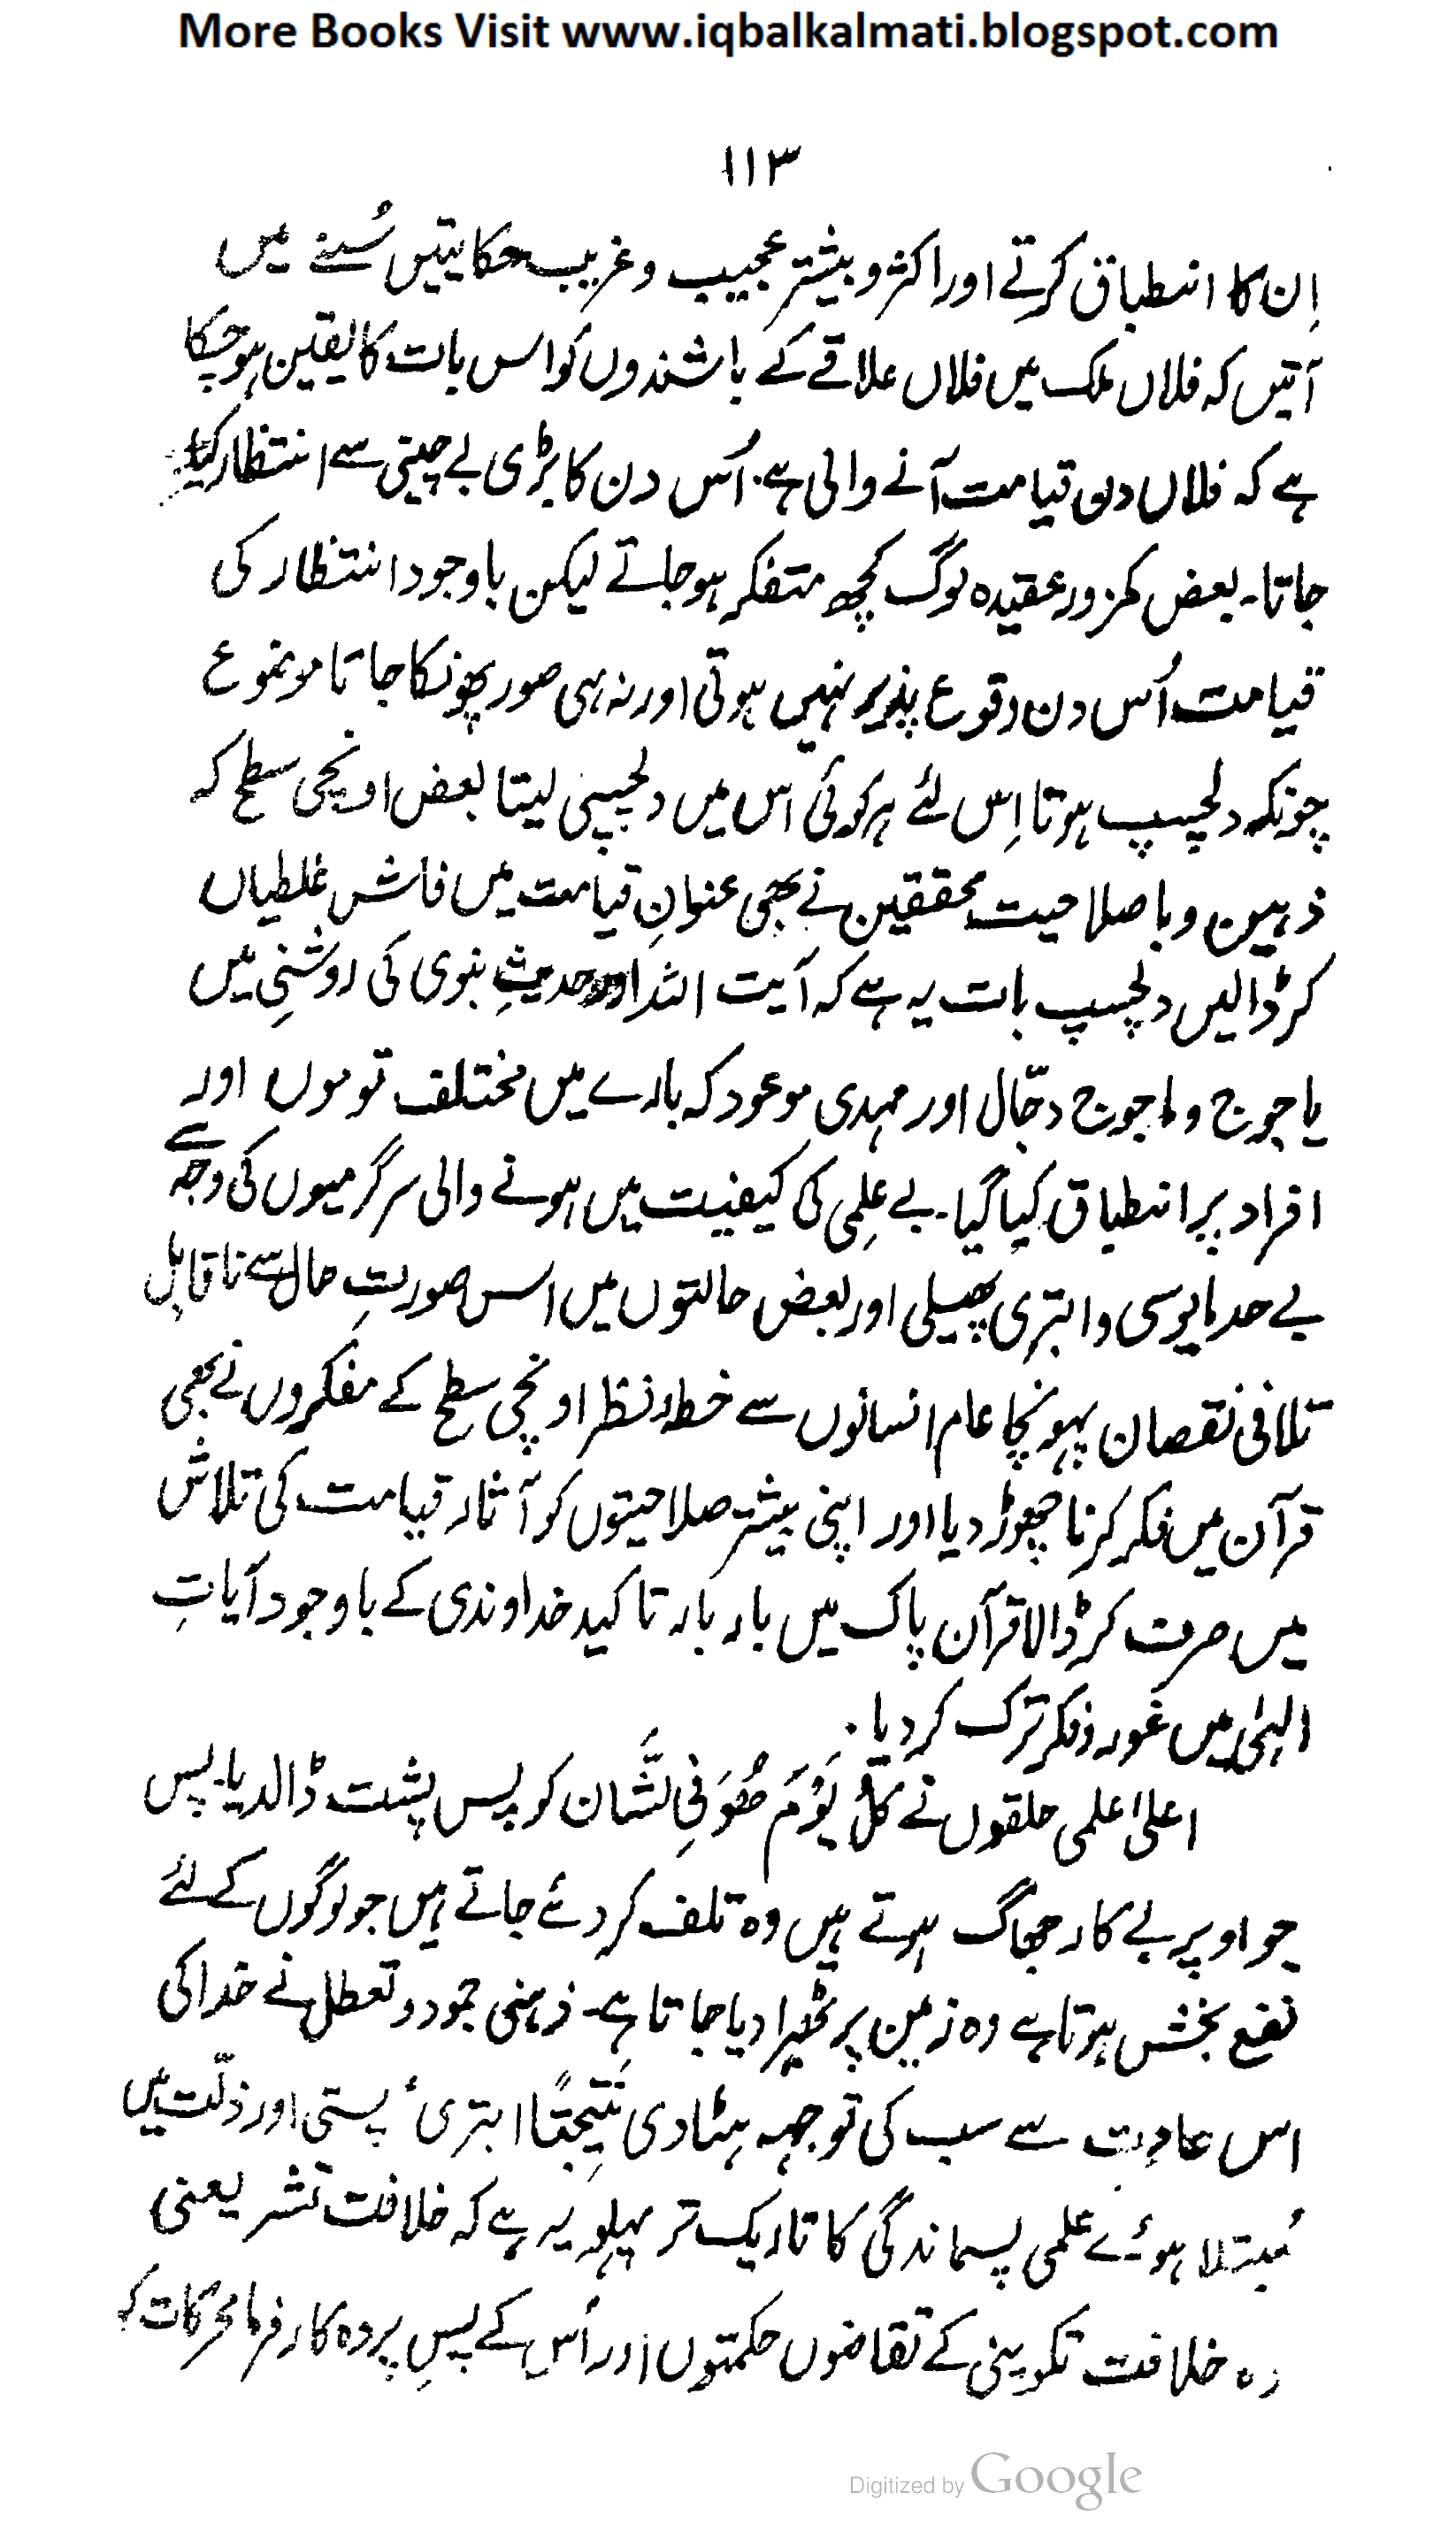 More Books Visit www.iqbalkalmati.blogspot.com
۱۱۳
اِن کا انطباق کرتے اور اکثر و بیشتر عجیب و غریب حکایتیں سُننے میں
آتیں کہ فلاں ملک میں فلاں علاقے کے باشندوں کو اس بات کا یقین ہو چکا
ہے کہ فلاں دن قیامت آنے والی ہے۔ اُس دن کا بڑی بے چینی سے انتظار کیا
جاتا۔ بعض کمزور عقیدہ لوگ کچھ متفکر ہو جاتے لیکن باوجود انتظار کی
قیامت اُس دن وقوع پذیر نہیں ہوتی اور نہ ہی صور پھونکا جاتا موضوع
چونکہ دلچسپ ہوتا اِس لئے ہر کوئی اس میں دلچسپی لیتا بعض اونچی سطح کہ
ذہین و باصلاحیت محققین نے بھی عنوانِ قیامت میں فاش غلطیاں
کر ڈالیں دلچسپ بات یہ ہے کہ آیت اللہ اور حدیثِ نبوی کی روشنی میں
یاجوج و ماجوج دجّال اور مہدی موعود کہ بارے میں مختلف قوموں اور
افراد پر انطباق کیا گیا۔ بے علمی کی کیفیت میں ہونے والی سرگرمیوں کی وجہ سے
بے حد مایوسی و ابتری پھیلی اور بعض حالتوں میں اس صورتِ حال سے ناقابلِ
تلافی نقصان پہونچا عام انسانوں سے قطۂ نظر اونچی سطح کے مفکروں نے بھی
قرآن میں فکر کرنا چھوڑ دیا اور اپنی بیشتر صلاحیتوں کو آثار قیامت کی تلاش
میں صرف کر ڈالا قرآن پاک میں بار بار تاکید خداوندی کے باوجود آیاتِ
الہٰی میں غور و فکر ترک کر دیا۔
اعلیٰ علمی حلقوں نے کُلَّ یَوْمَ ھُوَ فِی شَان کو پس پشت ڈالدیا۔ پس
جو اوپر بے کار جھاگ ہوتے ہیں وہ تلف کر دئے جاتے ہیں جو لوگوں کے لئے
نفع بخش ہوتا ہے وہ زمین پر ٹھیرا دیا جاتا ہے۔ ذہنی جمود و تعطل نے خدا کی
اس عادت سے سب کی توجہہ ہٹا دی نتیجتاً ابتری، پستی اور ذلّت میں
مُبتلا ہوئے علمی پسماندگی کا تاریک تر پہلو یہ ہے کہ خلافت تشریعنی
رہ خلافت تکوینی کے تقاضوں حکمتوں اور اُس کے پسِ پردہ کار فرما محرکات کو
Digitized by Google